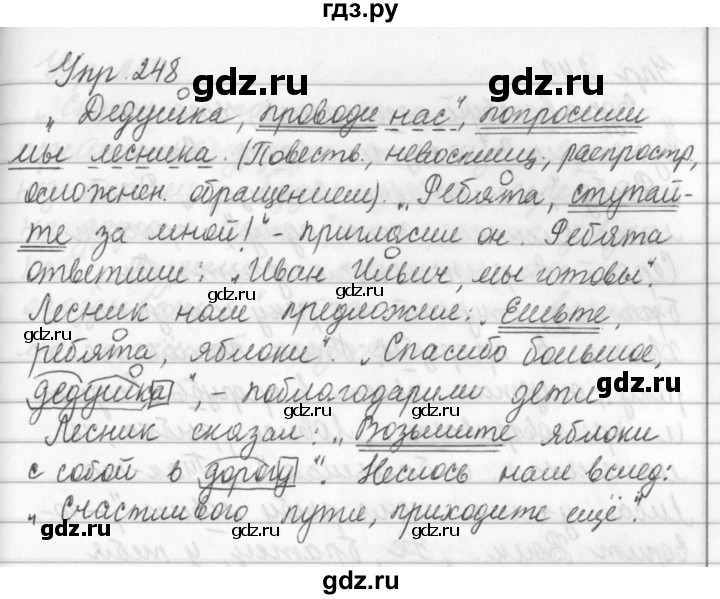 гдз.ру
Упр 248
gdz.ru gdz.ru
„Дедушка, проводи нас", попросили
мы лесника. (Повеств., невосклиц., распростр.,
осложнен. обращением). „Ребята, ступай-
те за мной!"- пригласил он. Ребята
ответили: „Иван Ильич, мы готовы".
gdz.ru
Лесник нам предложил: „Ешьте,
gdz.ru gdz.ru
ребята, яблоки". „Спасибо большое,
gdz.ru
дедушка", - поблагодарили дети
gdz.ru
Лесник сказал: „Возьмите яблоки
с собой в дорогу". Неслось нам вслед:
gdz.ru
„Счастливого пути, приходите ещё".
gdz.ru gdz.ru
gdz.ru